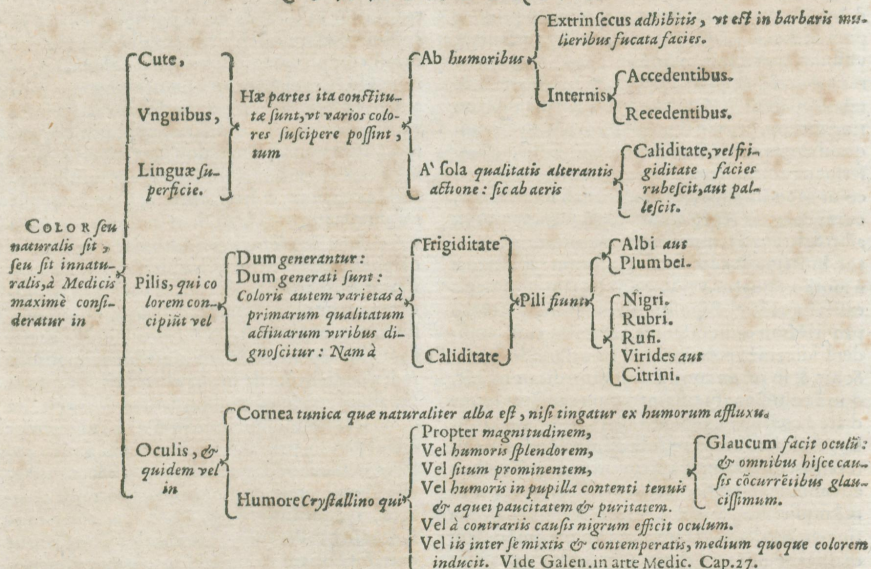 COLOR seu
naturalis sit,
seu sit innatu-
ralis, à Medicis
maximè consi-
deratur in
Cute,
Vnguibus,
Linguæ su-
perficie.
Hæ partes ita constitu-
tæ sunt, vt varios colo-
res suscipere possint,
tum
Ab humoribus
Extrinsecus adhibitis, vt est in barbaris mu-
lieribus fucata facies.
Internis
Accedentibus.
Recedentibus.
A' sola qualitatis alterantis
actione: sic ab aeris
Caliditate, vel fri-
giditate facies
rubescit, aut pal-
lescit.
Pilis, qui co
lorem con-
cipiūt vel
Dum generantur:
Dum generati sunt:
Coloris autem varietas à
primarum qualitatum
actiuarum viribus di-
gnoscitur: Nam à
Frigiditate
Caliditate
Pili fiunt
Albi aut
Plumbei.
Nigri.
Rubri.
Rufi.
Virides aut
Citrini.
Oculis, &
quidem vel
in
Cornea tunica quæ naturaliter alba est, nisi tingatur ex humorum affluxu.
Humore Crystallino qui
Propter magnitudinem,
Vel humoris splendorem,
Vel situm prominentem,
Vel humoris in pupilla contenti tenuis
& aquei paucitatem & puritatem.
Glaucum facit oculū:
& omnibus hisce cau-
sis cōcurrētibus glau-
cissimum.
Vel à contrariis causis nigrum efficit oculum.
Vel iis inter se mixtis & contemperatis, medium quoque colorem
inducit. Vide Galen. in arte Medic. Cap. 27.